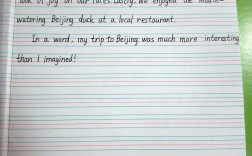 look of joy on our faces. Lastly, we enjoyed the mouth-
watering Beijing duck at a local restaurant.
In a word, my trip to Beijing was much more interesting
than I imagined!